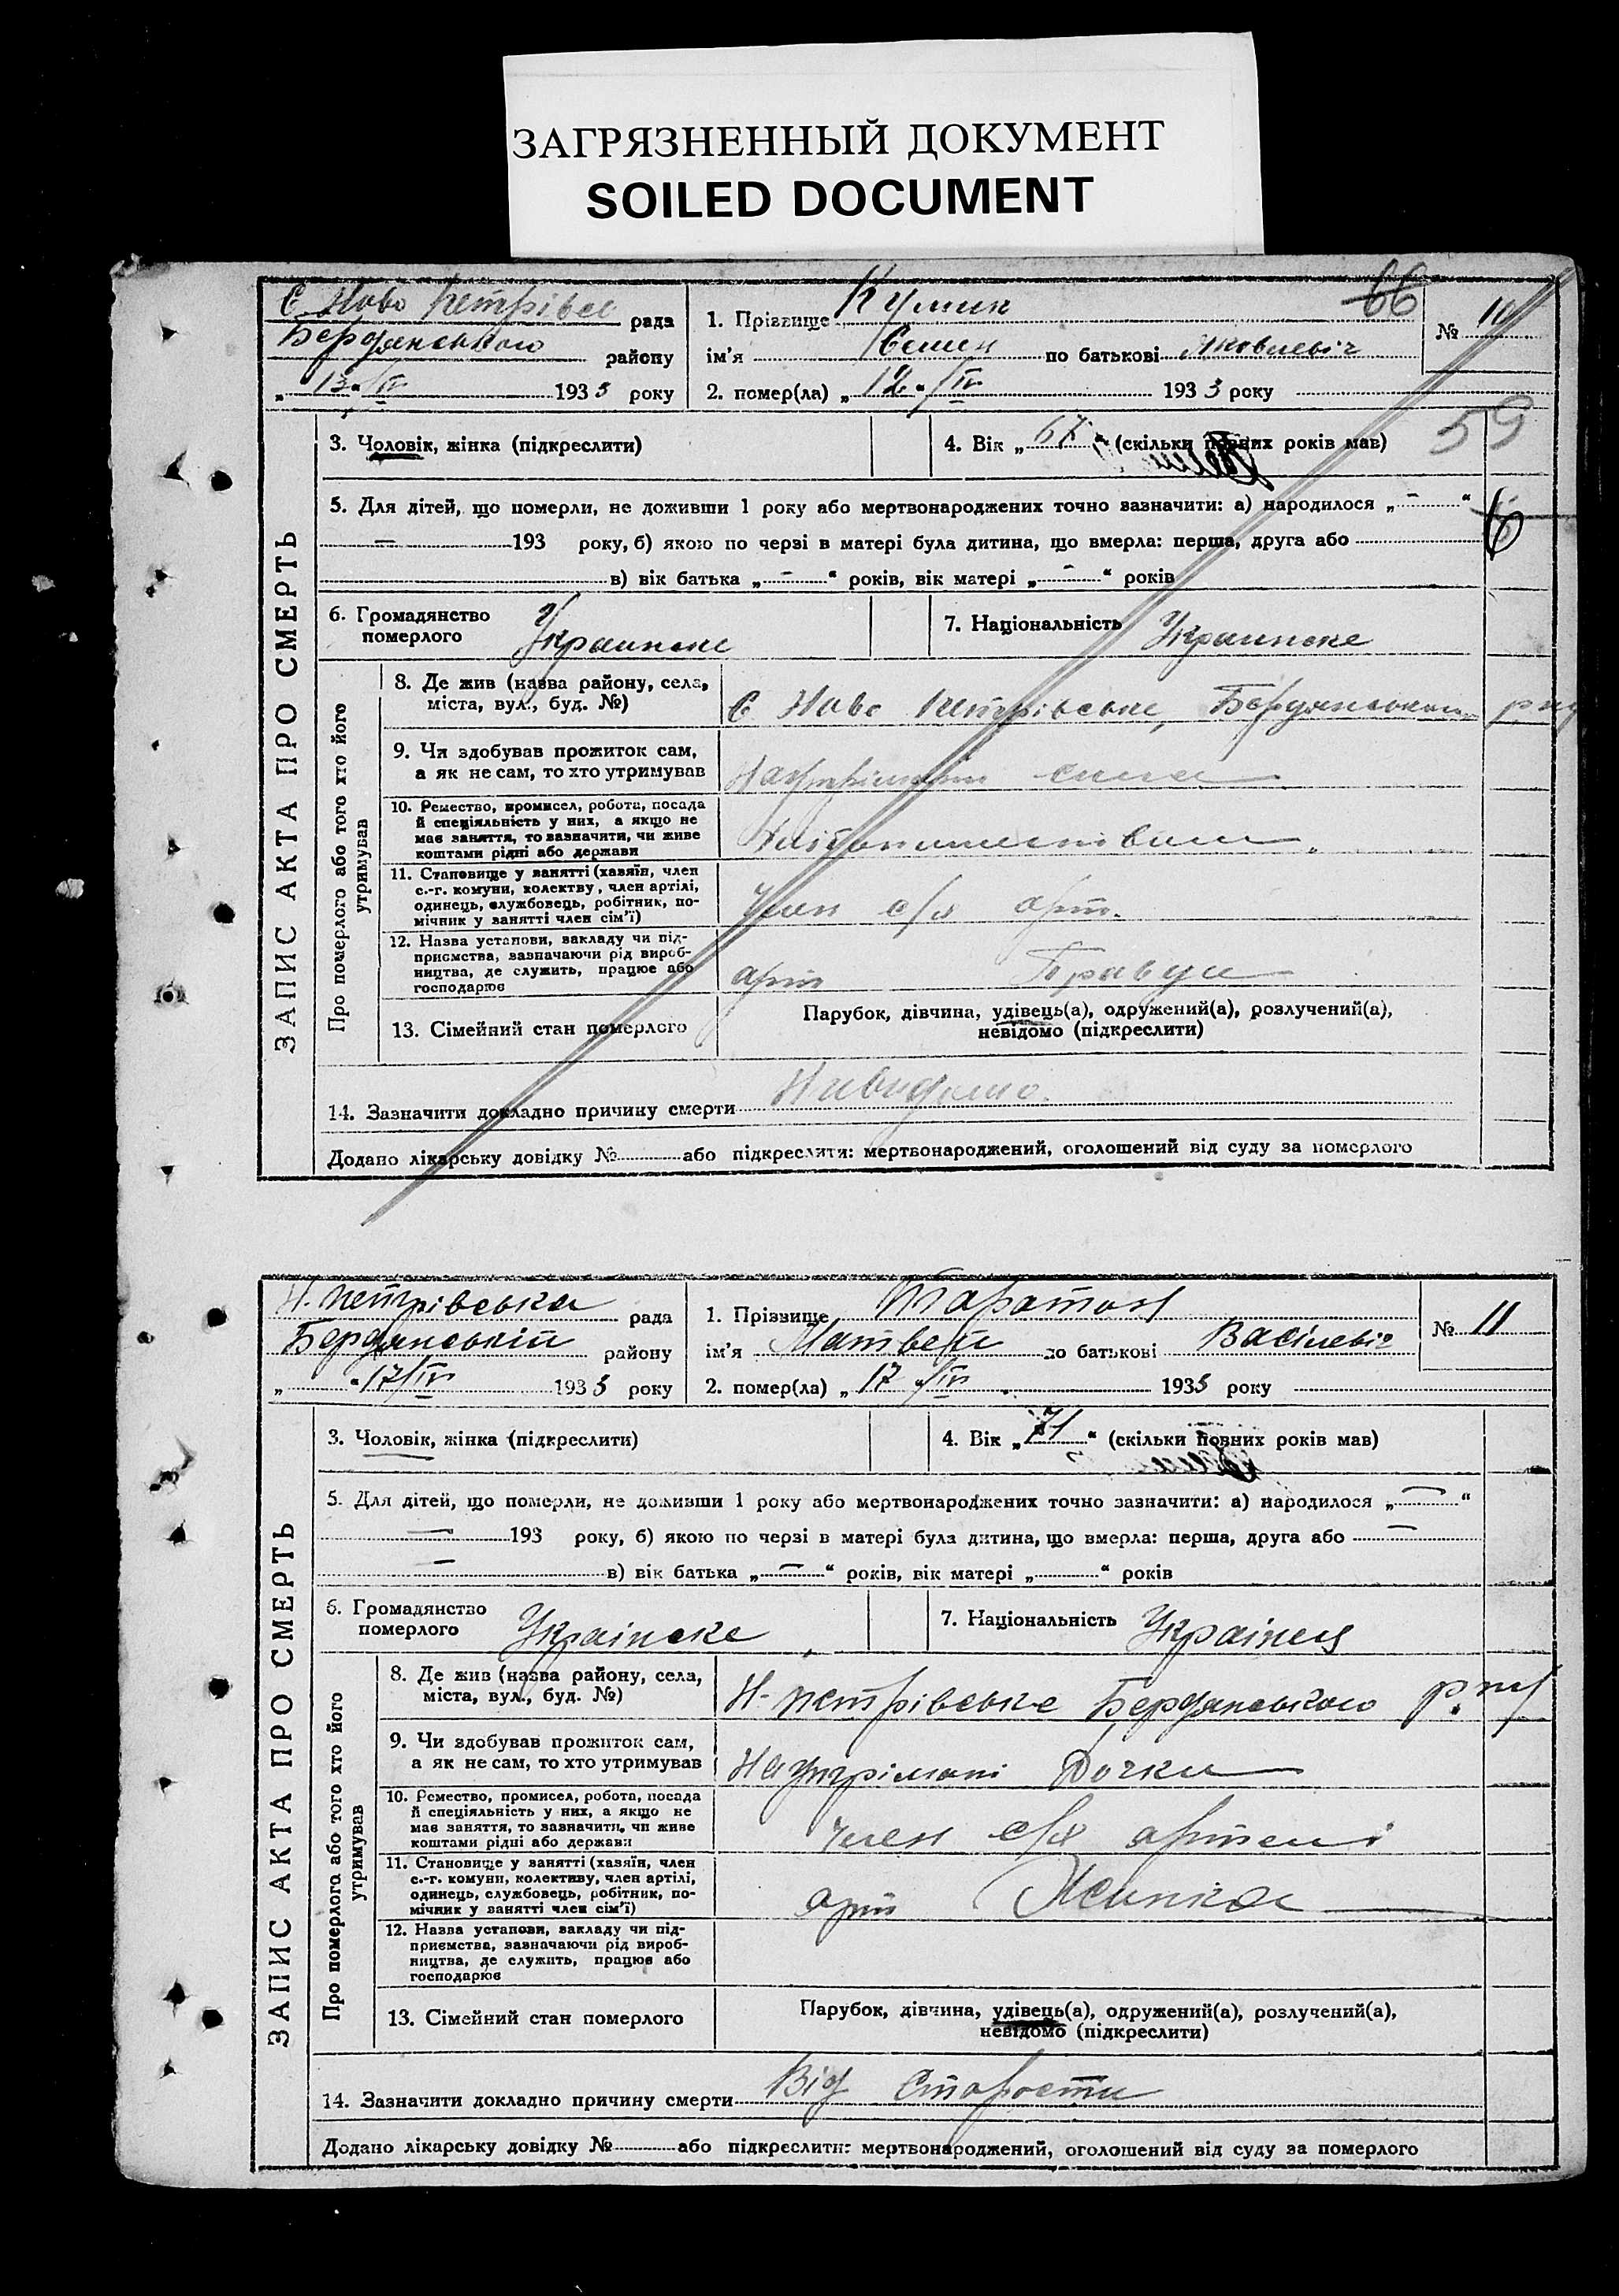 ЗАГРЯЗНЕННЫЙ ДОКУМЕНТ
SOILED DOCUMENT
С. Ново Петрівс рада
Бердянського району
„13“ IV 1933 року
66
1. Прізвище Кулик
ім'я Семен по батькові Яковлевіч
2. помер(ла) „12“ IV 1933 року
№ 10
59
ЗАПИС АКТА ПРО СМЕРТЬ
3. Чоловік, жінка (підкреслити)
4. Вік „67“ (скільки повних років мав)
5. Для дітей, що померли, не доживши 1 року або мертвонароджених точно зазначити: а) народилося „-“
— 193 року, б) якою по черзі в матері була дитина, що вмерла: перша, друга або
в) вік батька „-“ років, вік матері „-“ років
6
6. Громадянство померлого Украинске
7. Національність Украинске
Про померлого або того хто його утримував
8. Де жив (назва району, села, міста, вул., буд. №) С Ново Петрівське, Бердянського р-ну
9. Чи здобував прожиток сам, а як не сам, то хто утримував На утрімані сина
10. Ремество, промисел, робота, посада й спеціяльність у них, а якщо не має заняття, то зазначити, чи живе коштами рідні або держави
11. Становище у занятті (хазяїн, член с.-г. комуни, колектву, член артілі, одинець, службовець, робітник, помічник у занятті член сім'ї) Член с/х арт.
12. Назва установи, закладу чи підприємства, зазначаючи рід виробництва, де служить, працює або господарює арт
13. Сімейний стан померлого
Парубок, дівчина, удівець(а), одружений(а), розлучений(а), невідомо (підкреслити)
14. Зазначити докладно причину смерти Нивидомо.
Додано лікарську довідку № або підкреслити: мертвонароджений, оголошений від суду за померлого
Н. Петрівська рада
Бердянській району
„ “ 17/IV 1933 року
1. Прізвище Таратон
ім'я Матвей по батькові Васілевіч
2. помер(ла) „17“ IV 1933 року
№ 11
ЗАПИС АКТА ПРО СМЕРТЬ
3. Чоловік, жінка (підкреслити)
4. Вік „71“ (скільки повних років мав)
5. Для дітей, що померли, не доживши 1 року або мертвонароджених точно зазначити: а) народилося „—“
— 193 року, б) якою по черзі в матері була дитина, що вмерла: перша, друга або —
— в) вік батька „—“ років, вік матері „ “ років
6. Громадянство померлого Украінске
7. Національність Украінец
Про померлога або того хто його утримував
8. Де жив (назва району, села, міста, вул., буд. №) Н-Петрівське Бердянського р.ну
9. Чи здобував прожиток сам, а як не сам, то хто утримував На утрімані Дочки
10. Ремество, промисел, робота, посада й спеціяльність у них, а якщо не має заняття, то зазначити, чи живе коштами рідні або держави член с/х артелі
11. Становище у занятті (хазяїн, член с.-г. комуни, колективу, член артілі, одинець, службовець, робітник, помічник у занятті член сім'ї) арт
12. Назва установи, закладу чи підприємства, зазначаючи рід виробництва, де служить, працює або господарює
13. Сімейний стан померлого
Парубок, дівчина, удівець(а), одружений(а), розлучений(а), невідомо (підкреслити)
14. Зазначити докладно причину смерти Від Старости
Додано лікарську довідку № або підкреслити: мертвонароджений, оголошений від суду за померлого